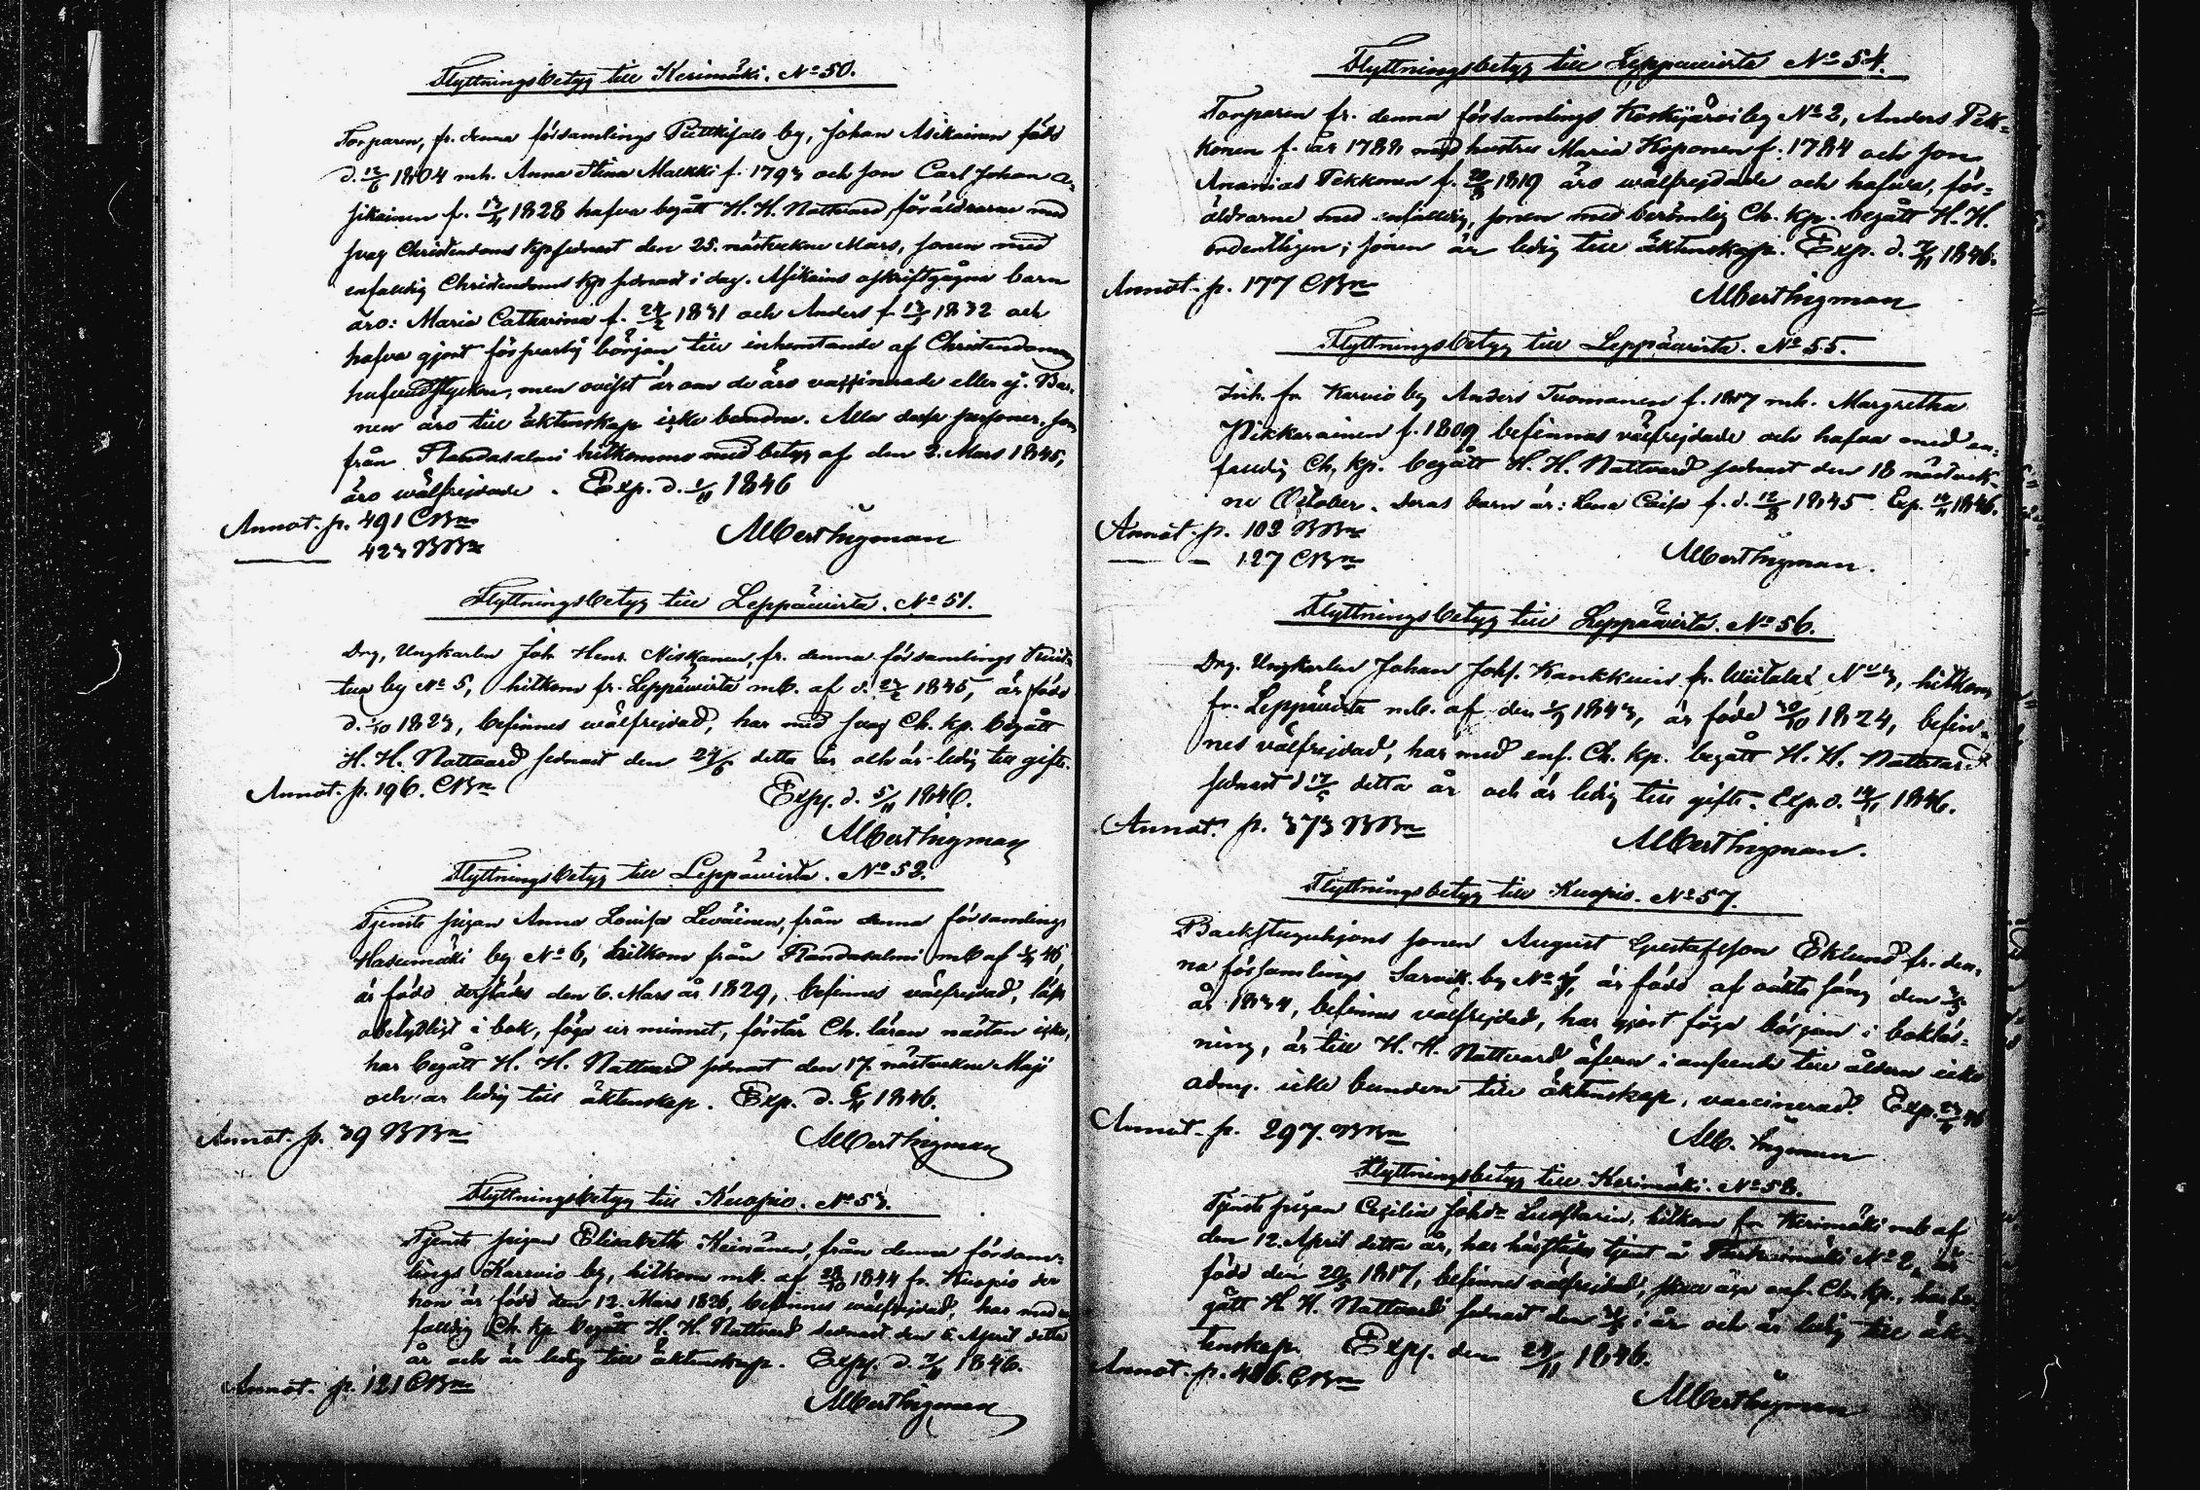 Flyttningsbetyg till Kerimäki. No 50.
Torparen, fr. denna församlings by, Johan Asikainen född
d. 1804 mh. Anna Stina Malkki f. 1793 och son Carl Johan A-
sikainen f. 1828 hafva begått H. H. Nattvard, föräldrarne med
svag Christendoms kp sednast den 25. nästvekne Mars, sonen med
enfaldig Christendoms kp sednast i dag. Asikains afskriftgågna barn
äro: Maria Catharina f. 1831 och Anders f. 1832 och
hafva gjort försvarlig början till inhemtande af Christendomens
hufvudstycken, men ovisst är om de äro vaccinerade eller ej. Bar-
nen äro till äktenskap icke bundne. Alla dessa personer, som
från Randasalmi hitkommo med betyg af den 2. Mars 1845,
äro wälfrejdade. Exp. d. 1846
Annot. p. 491 CBn
423 BBn
Albert Ingman
Flyttningsbetyg till Leppäwirta. No 51.
Drg, Ungkarlen Joh. Henr. Niskanen, fr. denna församlings
by No 5, hitkom fr. Leppäwirta mb. af d. 1845, är född
d. 1823, befinnes wälfrejdad, har med svag Ch. kp. begått
H. H. Nattvard sednast den 24/6 detta år och är ledig till gifte.
Annot. p. 196. CBn
Exp. d. 5/11 1846.
Albert Ingman
Flyttningsbetyg till Leppäwirta. No 52.
Tjenste pigan Anna Lovisa Leväinen, från denna församlings
Hasumäki by No 6, hitkom från Randasalmi mb af 46
är född derstädes den 6. Mars år 1829, befinnes välfrejdad, läser
obetydligt i bok, föga ur minnet, förstår Ch. läran nästan icke,
har begått H. H. Nattvard sednast den 17. nästvekne Maji
och är ledig till äktenskap. Exp. d. 1846.
Annot. p. 39 BBn
Albert Ingman
Flyttningsbetyg till Kuopio. No 53.
Tjenste pigan Elisabeth Heinänen, från denna försam-
lings Karvio by, hitkom mb. af 1844 fr. Kuopio der
hon är född den 12. Mars 1826, befinnes wälfrejdad, har med en-
faldig Ch. kp. begått H. H. Nattvard sednast den 5. April detta
år och är ledig till äktenskap. Exp. d. 1846.
Annot. p. 121 CBn
Albert Ingman
Flyttningsbetyg till Leppäwirta No 54.
Torparen fr. denna församlings Koskijärvi by No 2, Anders Tek-
konen f. år 1788 med hustru Maria Koponen f. 1784 och son
Ananias Tekkonen f. 1819 äro wälfrejdade och hafwa, för-
äldrarne med enfaldig, sonen med berömlig Ch. kp. begått H. H.
ordentligen; sonen är ledig till äktenskap. Exp. d. 1846.
Annot. p. 177 CBn
Albert Ingman
Flyttningsbetyg till Leppäwirta. No 55.
Inh. fr. Karvio by Anders Tuomanen f. 1817 mh. Margretha
Pikkarainen f. 1809 befinnas välfrejdade och hafva med en-
faldig Ch. kp. begått H. H. Nattvard sednast den 18 nästvek-
ne October. Deras barn är: Lena Caisa f. d. 1845. Exp. 1846.
Annot. p. 102 BBn
127 CBn
Albert Ingman.
Flyttningsbetyg till Leppäwirta. No 56.
Drg. Ungkarlen Johan Johs. Kankkuin fr. No 3, hitkom
fr. Leppäwirta mb. af den 1843, är född 30/10 1824, befin-
nes välfrejdad, har med enf. Ch. kp. begått H. H. Nattvard
sednast d. detta år och är ledig till gifte. Exp. d. 1846.
Annot. p. 373 BBn
Albert Ingman.
Flyttningsbetyg till Kuopio. No 57.
Backstuguhjons sonen August Gustafsson Eklund fr. den-
na församlings Sarvik. by No är född af oäkta säng den
år 1834, befinnes välfrejdad, har gjort föga början i bokläs-
ning, är till H. H. Nattvard äfven i anseende till åldern icke
admg. icke bunden till äktenskap, vaccinerad. Exp. 46
Annot. p. 297. BBn
Alb. Ingman
Flyttningsbetyg till Kerimäki. No 58.
Tjenste pigan Cecilia Johsdr hitkom fr. Kerimäki mb af
den 12. April detta år, har härstädes tjent å No 2, är
född den 1817, befinnes välfrejdad, äga enf. Ch. kp., har be-
gått H. H. Nattvard sednast den i år och är ledig till äk-
tenskap. Exp. den 24/11 1846.
Annot. p. 486. CBn
Albert Ingman